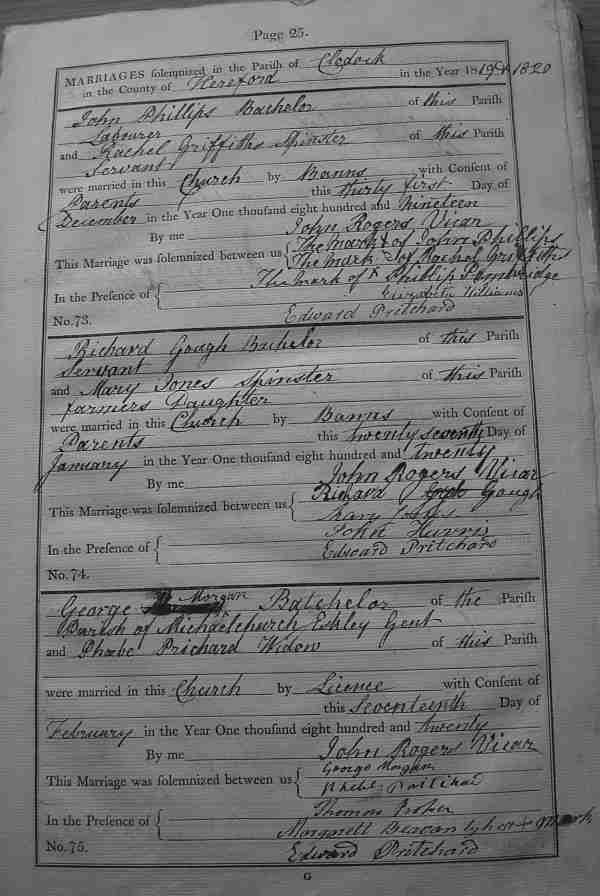 Page 25.
MARRIAGES solemnized in the Parish of Clodock
in the County of Hereford in the Year 1819 & 1820
John Phillips Bachelor of this Parish
Labourer
and Rachel Griffiths Spinster of this Parish
Servant
were married in this Church by Banns with Consent of
Parents this thirty first Day of
December in the Year One thousand eight hundred and Nineteen
By me John Rogers Vicar
This Marriage was solemnized between us The mark of John Phillips
The Mark of Rachel Griffiths
In the Presence of The Mark of x Phillip Pembridge
Elizabeth Williams
No. 73. Edward Pritchard
Richard Gough Bachelor of this Parish
Servant
and Mary Jones Spinster of this Parish
farmers Daughter
were married in this Church by Banns with Consent of
Parents this twenty seventh Day of
January in the Year One thousand eight hundred and twenty
By me John Rogers Vicar
This Marriage was solemnized between us Richard Gough
Mary Jones
In the Presence of John Harris
Edward Pritchard
No. 74.
George Morgan Batchelor of the Parish
Parish of Michaelchurch Eskley Gent
and Phœbe Prichard Widow of this Parish
were married in this Church by Licence with Consent of
this Seventeenth Day of
February in the Year One thousand eight hundred and twenty
By me John Rogers Vicar
This Marriage was solemnized between us George Morgan
Phebe
In the Presence of Thomas
Margarett her + mark
No. 75. Edward Pritchard
G